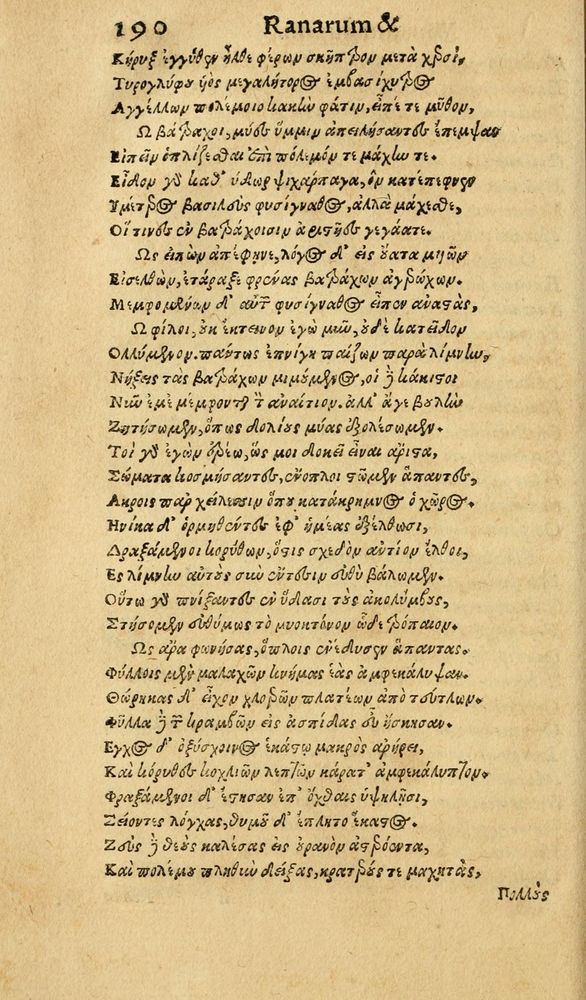 190 Ranarum &
Κήρυξ ἐγγύθεν ἦλθε φέρων σκῆπτρον μετὰ χερσὶ,
Τυρογλύφου ὑὸς μεγαλήτορος ἐμβασίχυτρος
Αγγέλλων πολέμοιο κακὼν φάτιν, εἶπέ τε μῦθον,
Ω βάτραχοι, μύες ὕμμιν ἀπειλήσαντες ἔπεμψαν
Εἰπεῖν ὁπλίζεσθαι ἐπὶ πόλεμόν τε μάχην τε.
Εἶδον γὸ καθ' ὕδωρ ψιχάρπαγα, ὃν κατέπεφνεν
Υμέτερος βασιλεὺς φυσίγναθος, ἀλλὰ μάχεσθε,
Οἵ τινες ἐν βατράχοισιν ἀριστῆες γεγάατε.
Ως εἰπὼν ἀπέφηνε, λόγος δ' εἰς ὔατα μυῶν
Εἰσελθὼν, ἐτάραξε φρένας βατράχων ἀγρώχων.
Μεμφομένων δ' αὐτῶν φυσίγναθος εἶπεν ἀναστὰς,
Ω φίλοι, οὐκ ἔκτεινον ἐγὼ μῦν, οὐδὲ κατεῖδον
Ολλύμενον. πάντως ἐπνίγη παίζων παρὰ λίμνην,
Νήξεις τὰς βατράχων μιμούμενος, οἱ δὲ κάκιστοι
Νῦν ἐμὲ μέμφονται τὸν ἀναίτιον. ἀλλ' ἄγε βουλὴν
Ζητήσωμεν, ὅπως δολίους μύας ἐξολέσωμεν.
Τοὶ γὸ ἐγὼν ἐρέω, ὥς μοι δοκεῖ εἶναι ἄριστα,
Σώματα κοσμήσαντες, ἐνόπλοι στῶμεν ἅπαντες,
Ακροις παρ χείλεσσιν ὅπου κατάκρημνος ὁ χῶρος.
Ηνίκα δ' ὁρμηθέντες ἐφ' ἡμέας ἐξέλθωσι,
Δραξάμενοι κορύθων, ὅστις σχεδὸν ἀντίον ἔλθοι,
Ες λίμνην αὐτοὺς σὺν ἔντεσιν εὐθὺ βάλωμεν.
Οὕτω γὸ πνίξαντες ἐν ὕδασι τοὺς ἀκολύμβους,
Στήσομεν εὐθύμως τὸ μυοκτόνον ὧδε τρόπαιον.
Ως ἄρα φωνήσας, ὅπλοις ἐνέδυσεν ἅπαντας.
Φύλλοις μὲν μαλαχῶν κνήμας ἑὰς ἀμφεκάλυψαν.
Θώρηκας δ' εἶχον χλοερῶν πλατέων ἀπὸ τεύτλων.
Φύλλα δὲ τῶν κραμβῶν εἰς ἀσπίδας εὖ ἤσκησαν.
Εγχος δ' ὀξύσχοινος ἑκάστῳ μακρὸς ἀρήρει,
Καὶ κόρυθες κοχλιῶν λεπτῶν κάρατ' ἀμφεκάλυπτον.
Φραξάμενοι δ' ἔστησαν ἐπ' ὄχθαις ὑψηλῇσι,
Σείοντες λόγχας, θυμοῦ δ' ἔπλητο ἕκαστος.
Ζεὺς δὲ θεοὺς καλέσας εἰς οὐρανὸν ἀστρόεντα,
Καὶ πολέμου πληθὺν δείξας, κρατερούς τε μαχητὰς,
Πολλοὺς